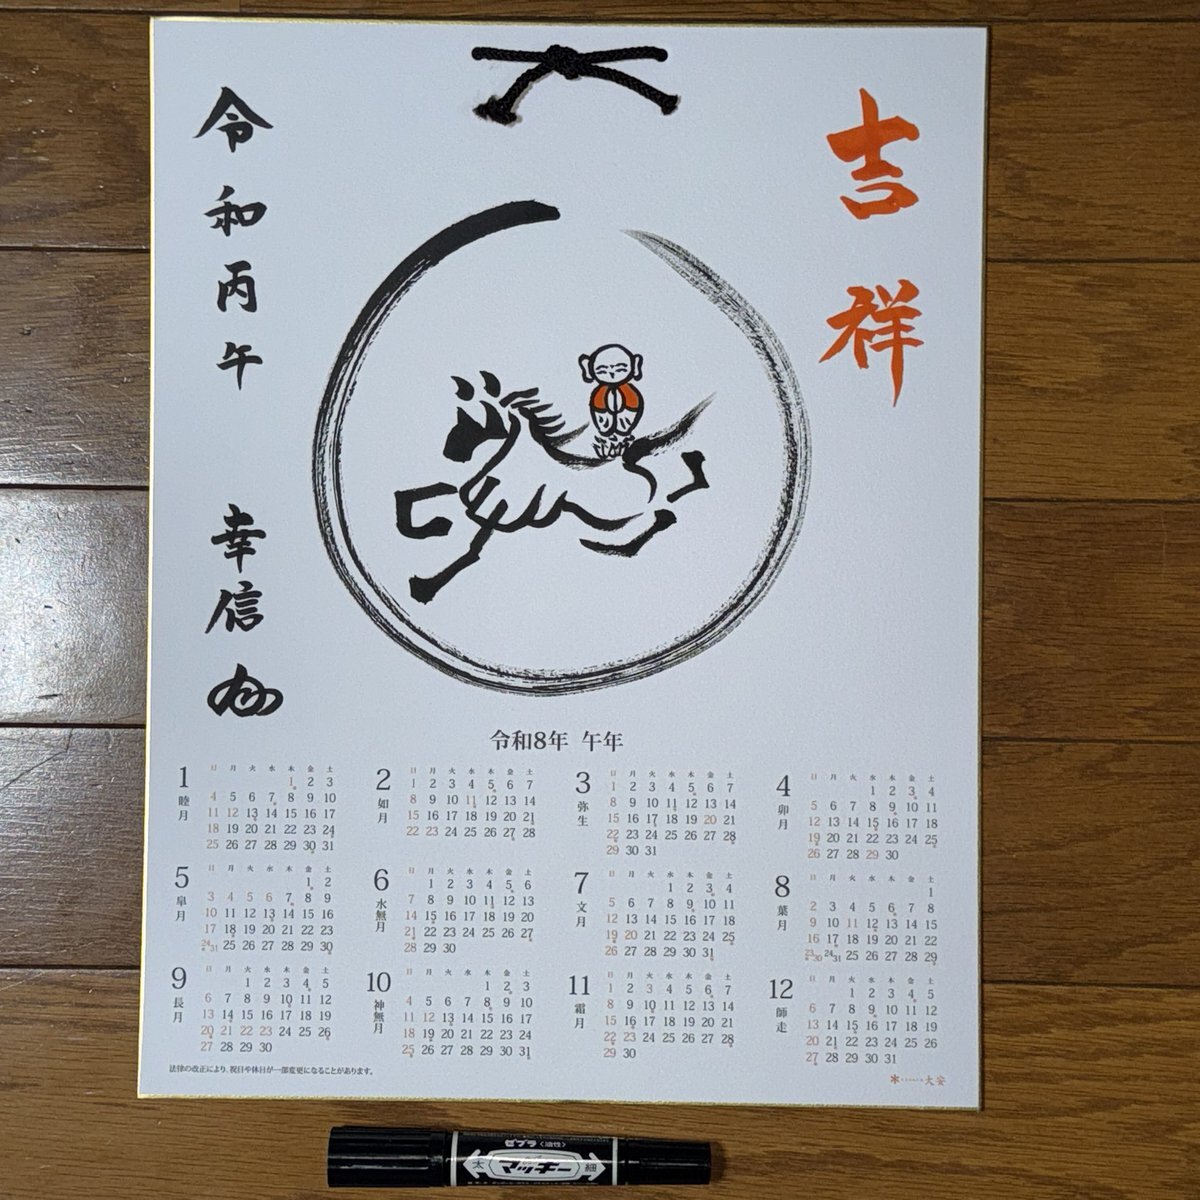 吉祥
令和丙午
幸信
令和8年 午年
1
睦月
日 月 火 水 木 金 土
1 2 3
4 5 6 7 8 9 10
11 12 13 14 15 16 17
18 19 20 21 22 23 24
25 26 27 28 29 30 31
2
如月
日 月 火 水 木 金 土
1 2 3 4 5 6 7
8 9 10 11 12 13 14
15 16 17 18 19 20 21
22 23 24 25 26 27 28
3
弥生
日 月 火 水 木 金 土
1 2 3 4 5 6 7
8 9 10 11 12 13 14
15 16 17 18 19 20 21
22 23 24 25 26 27 28
29 30 31
4
卯月
日 月 火 水 木 金 土
1 2 3 4
5 6 7 8 9 10 11
12 13 14 15 16 17 18
19 20 21 22 23 24 25
26 27 28 29 30
5
皐月
日 月 火 水 木 金 土
1 2
3 4 5 6 7 8 9
10 11 12 13 14 15 16
17 18 19 20 21 22 23
24/31 25 26 27 28 29 30
6
水無月
日 月 火 水 木 金 土
1 2 3 4 5 6
7 8 9 10 11 12 13
14 15 16 17 18 19 20
21 22 23 24 25 26 27
28 29 30
7
文月
日 月 火 水 木 金 土
1 2 3 4
5 6 7 8 9 10 11
12 13 14 15 16 17 18
19 20 21 22 23 24 25
26 27 28 29 30 31
8
葉月
日 月 火 水 木 金 土
1
2 3 4 5 6 7 8
9 10 11 12 13 14 15
16 17 18 19 20 21 22
23/30 24/31 25 26 27 28 29
9
長月
日 月 火 水 木 金 土
1 2 3 4 5
6 7 8 9 10 11 12
13 14 15 16 17 18 19
20 21 22 23 24 25 26
27 28 29 30
10
神無月
日 月 火 水 木 金 土
1 2 3
4 5 6 7 8 9 10
11 12 13 14 15 16 17
18 19 20 21 22 23 24
25 26 27 28 29 30 31
11
霜月
日 月 火 水 木 金 土
1 2 3 4 5 6 7
8 9 10 11 12 13 14
15 16 17 18 19 20 21
22 23 24 25 26 27 28
29 30
12
師走
日 月 火 水 木 金 土
1 2 3 4 5
6 7 8 9 10 11 12
13 14 15 16 17 18 19
20 21 22 23 24 25 26
27 28 29 30 31
法律の改正により、祝日や休日が一部変更になることがあります。
*‥‥‥大安
ゼブラ〈油性〉
太 マッキー 細